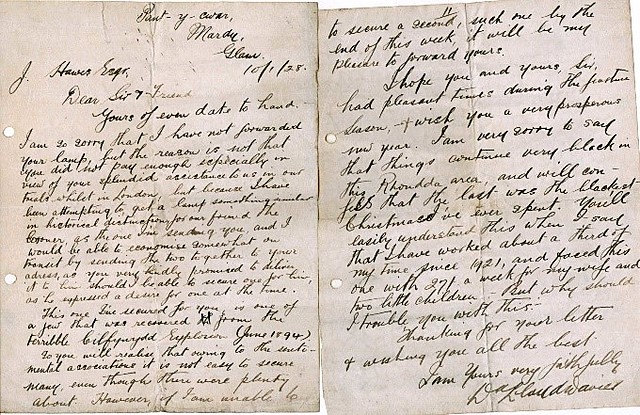 Pant-y-cwar,
Mardy,
Glam.
10/1/28.
J. Hawes Esqr.
Dear Sir & Friend
Yours of even date to hand.
I am so sorry that I have not forwarded
your lamp, but the reason is not that
you did not pay enough especially in
view of your splendid assistance to us in our
trials whilst in London, but because I have
been attempting to get a lamp something similar
in historical distinction for our friend the
as the one I'm sending you, and I
would be able to economise somewhat on
transit by sending the two together to your
adress, as you very kindly promised to deliver
it to him should I be able to secure one for him,
as he expressed a desire for one at the time.
This one I've secured for you, is one of
a few that was recovered from the
terrible Cilfynydd Explosion (June 1894)
So you will realise that owing to the senti-
mental associations it is not easy to secure
many, even though there were plenty
about. However, if I am unable to
to secure a second, such one by the
end of this week, it will be my
pleasure to forward yours.
I hope you and yours, Sir,
had pleasant times during the festive
Season, & wish you a very prosperous
new year. I am very sorry to say
that things continue very black in
this Rhondda area, and will con-
fess that the last was the blackest
Christmas I've ever spent. You'll
easily understand this when I say
that I have worked about a third of
my time since 1921, and faced this
one with 27/- a week for my wife and
two little children. But why should
I trouble you with this.
Thanking for your letter
& wishing you all the best.
I am Yours very faithfully